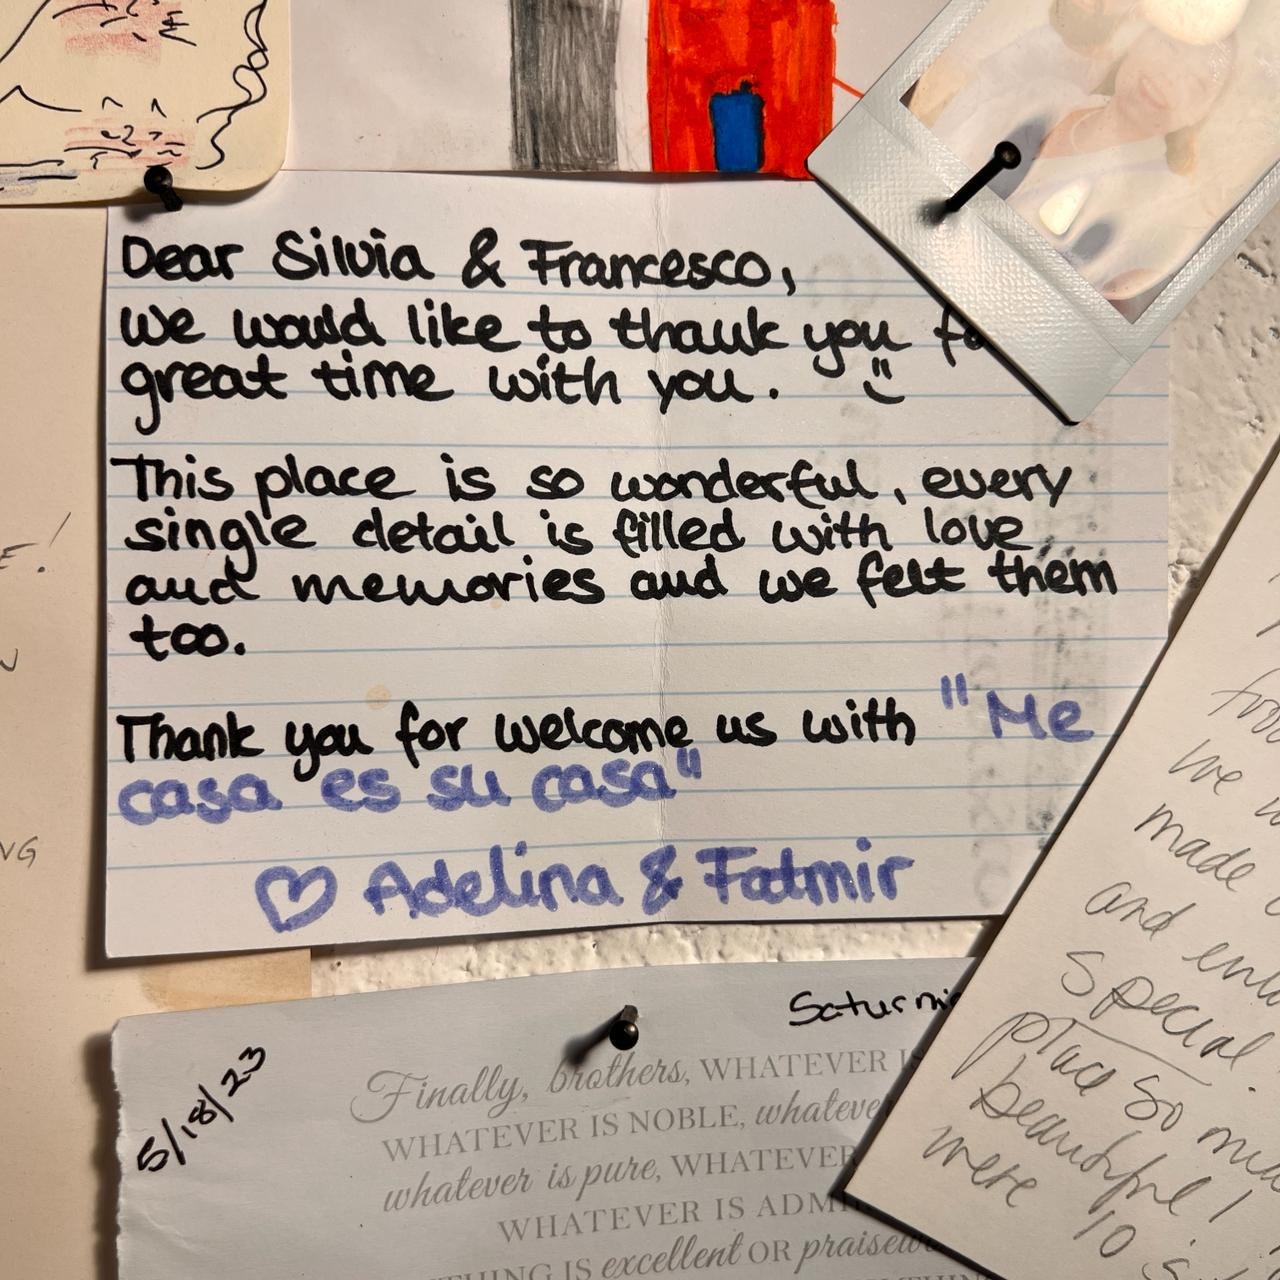 Dear Silvia & Francesco,
we would like to thank you
great time with you.
This place is so wonderful, every
single detail is filled with love,
and memories and we felt them
too.
Thank you for welcome us with "Me
casa es su casa"
♡ Adelina & Fatmir
E!
NG
5/18/23
Finally, brothers, WHATEVER
WHATEVER IS NOBLE,
whatever is pure, WHATEVER
WHATEVER IS
IS excellent OR
we
made
and
special.
place so
beautiful!
were 10